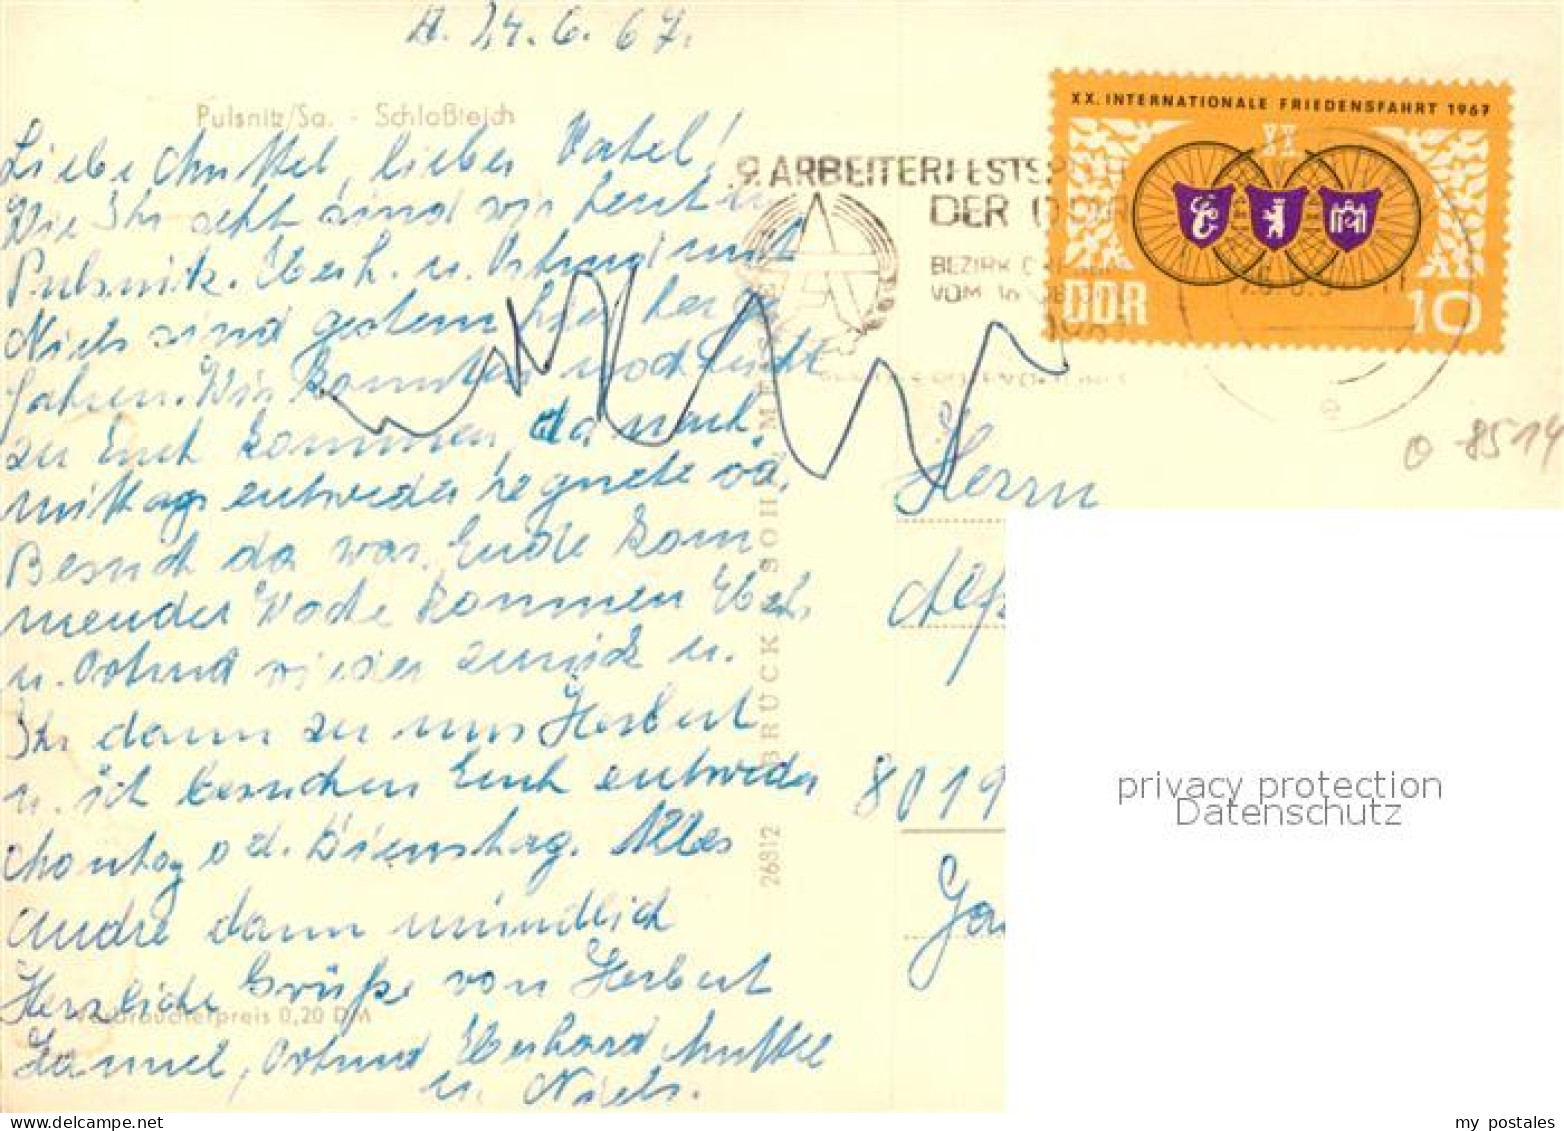 A. 24.6.67.
Pulsnitz/Sa. - Schloßteich
Liebe Muttel, lieber Vatel!
Wie Ihr seht sind wir heut in
Pulsnitz. Eberh. u. Ortrud mit
Niels sind gestern hier her ge
fahren. Wir konnten noch nicht
zu Euch kommen, da nach,
mittags entweder regnete od.
Besuch da war. Ende kom
mender Woche kommen Eberh.
u. Ortrud wieder zurück u.
Ihr dann zu uns Herbert
u. ich besuchen Euch entweder
Montag od. Dienstag. Alles
Andre dann mündlich
Herzliche Grüße von Herbert
Hannel, Ortrud Eberhard Muttel
u. Niels.
Verbraucherpreis 0,20 DM
26812 BRÜCK SOHN, MEISSEN
XX. INTERNATIONALE FRIEDENSFAHRT 1967
XX
DDR
10
9. ARBEITERFESTSP
DER DDR
BEZIRK DRESDEN
VOM 16
1967
o 8514
Herrn
Alf
8019
privacy protection
Datenschutz
my postales